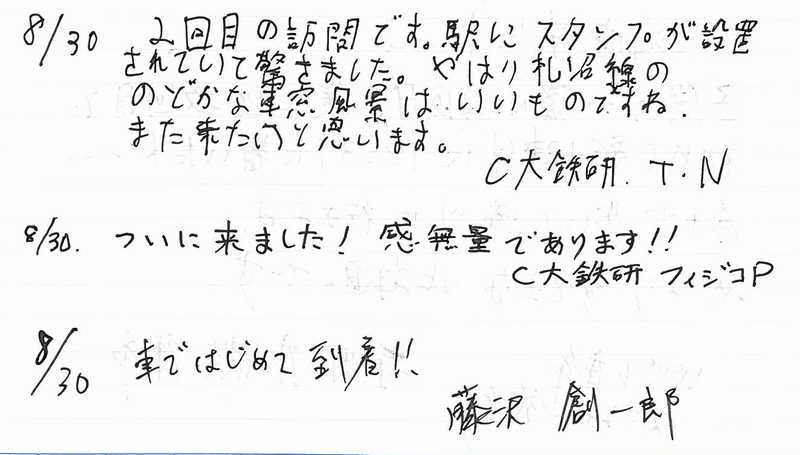 8/30 2回目の訪問です。駅にスタンプが設置
されていて驚きました。やはり札沼線の
のどかな車窓風景はいいものですね.
また来たいと思います。
C大鉄研. T・N
8/30. ついに来ました! 感無量であります!!
C大鉄研 フィジコP
8/30 車ではじめて到着!!
藤沢 創一郎